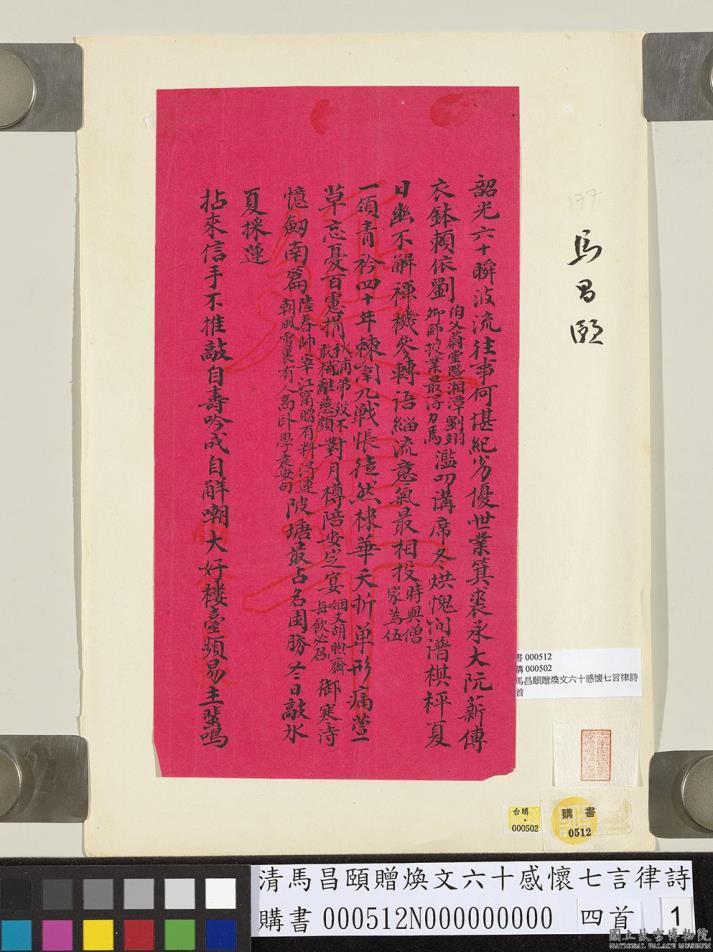 韶光六十瞬波流往事何堪紀劣優世業箕裘承大阮薪傳
衣鉢賴依劉伯父蔚堂暨湘潭劉翊卿師授業最得力焉濫叨講席冬烘愧閒譜棋枰夏
日幽不解禪機參轉語緇流意氣最相投時與僧家為伍
一領青衿四十年棘闈九戰悵徒然棣華夭折單形痛萱
草忘憂百慮捐秋浦弟歿不敢稍離慈顏對月樽陪安定宴姻丈胡煦齋每飲必召御寒詩
憶劍南篇陸春帥宰江甯贈有料得連朝風雪裏有人高臥學袁安句陂塘最占名園勝冬日敲冰
夏採蓮
拈來信手不推敲自壽吟成自解嘲大好樓臺頻易主蜚鳴
177
馬昌頤
書 000512
購 000502
馬昌頤贈煥文六十感懷七言律詩
首
台購
000502
購 書
0512
清馬昌頤贈煥文六十感懷七言律詩
購書 000512N000000000 四首 1
國立故宮博物院
NATIONAL PALACE MUSEUM